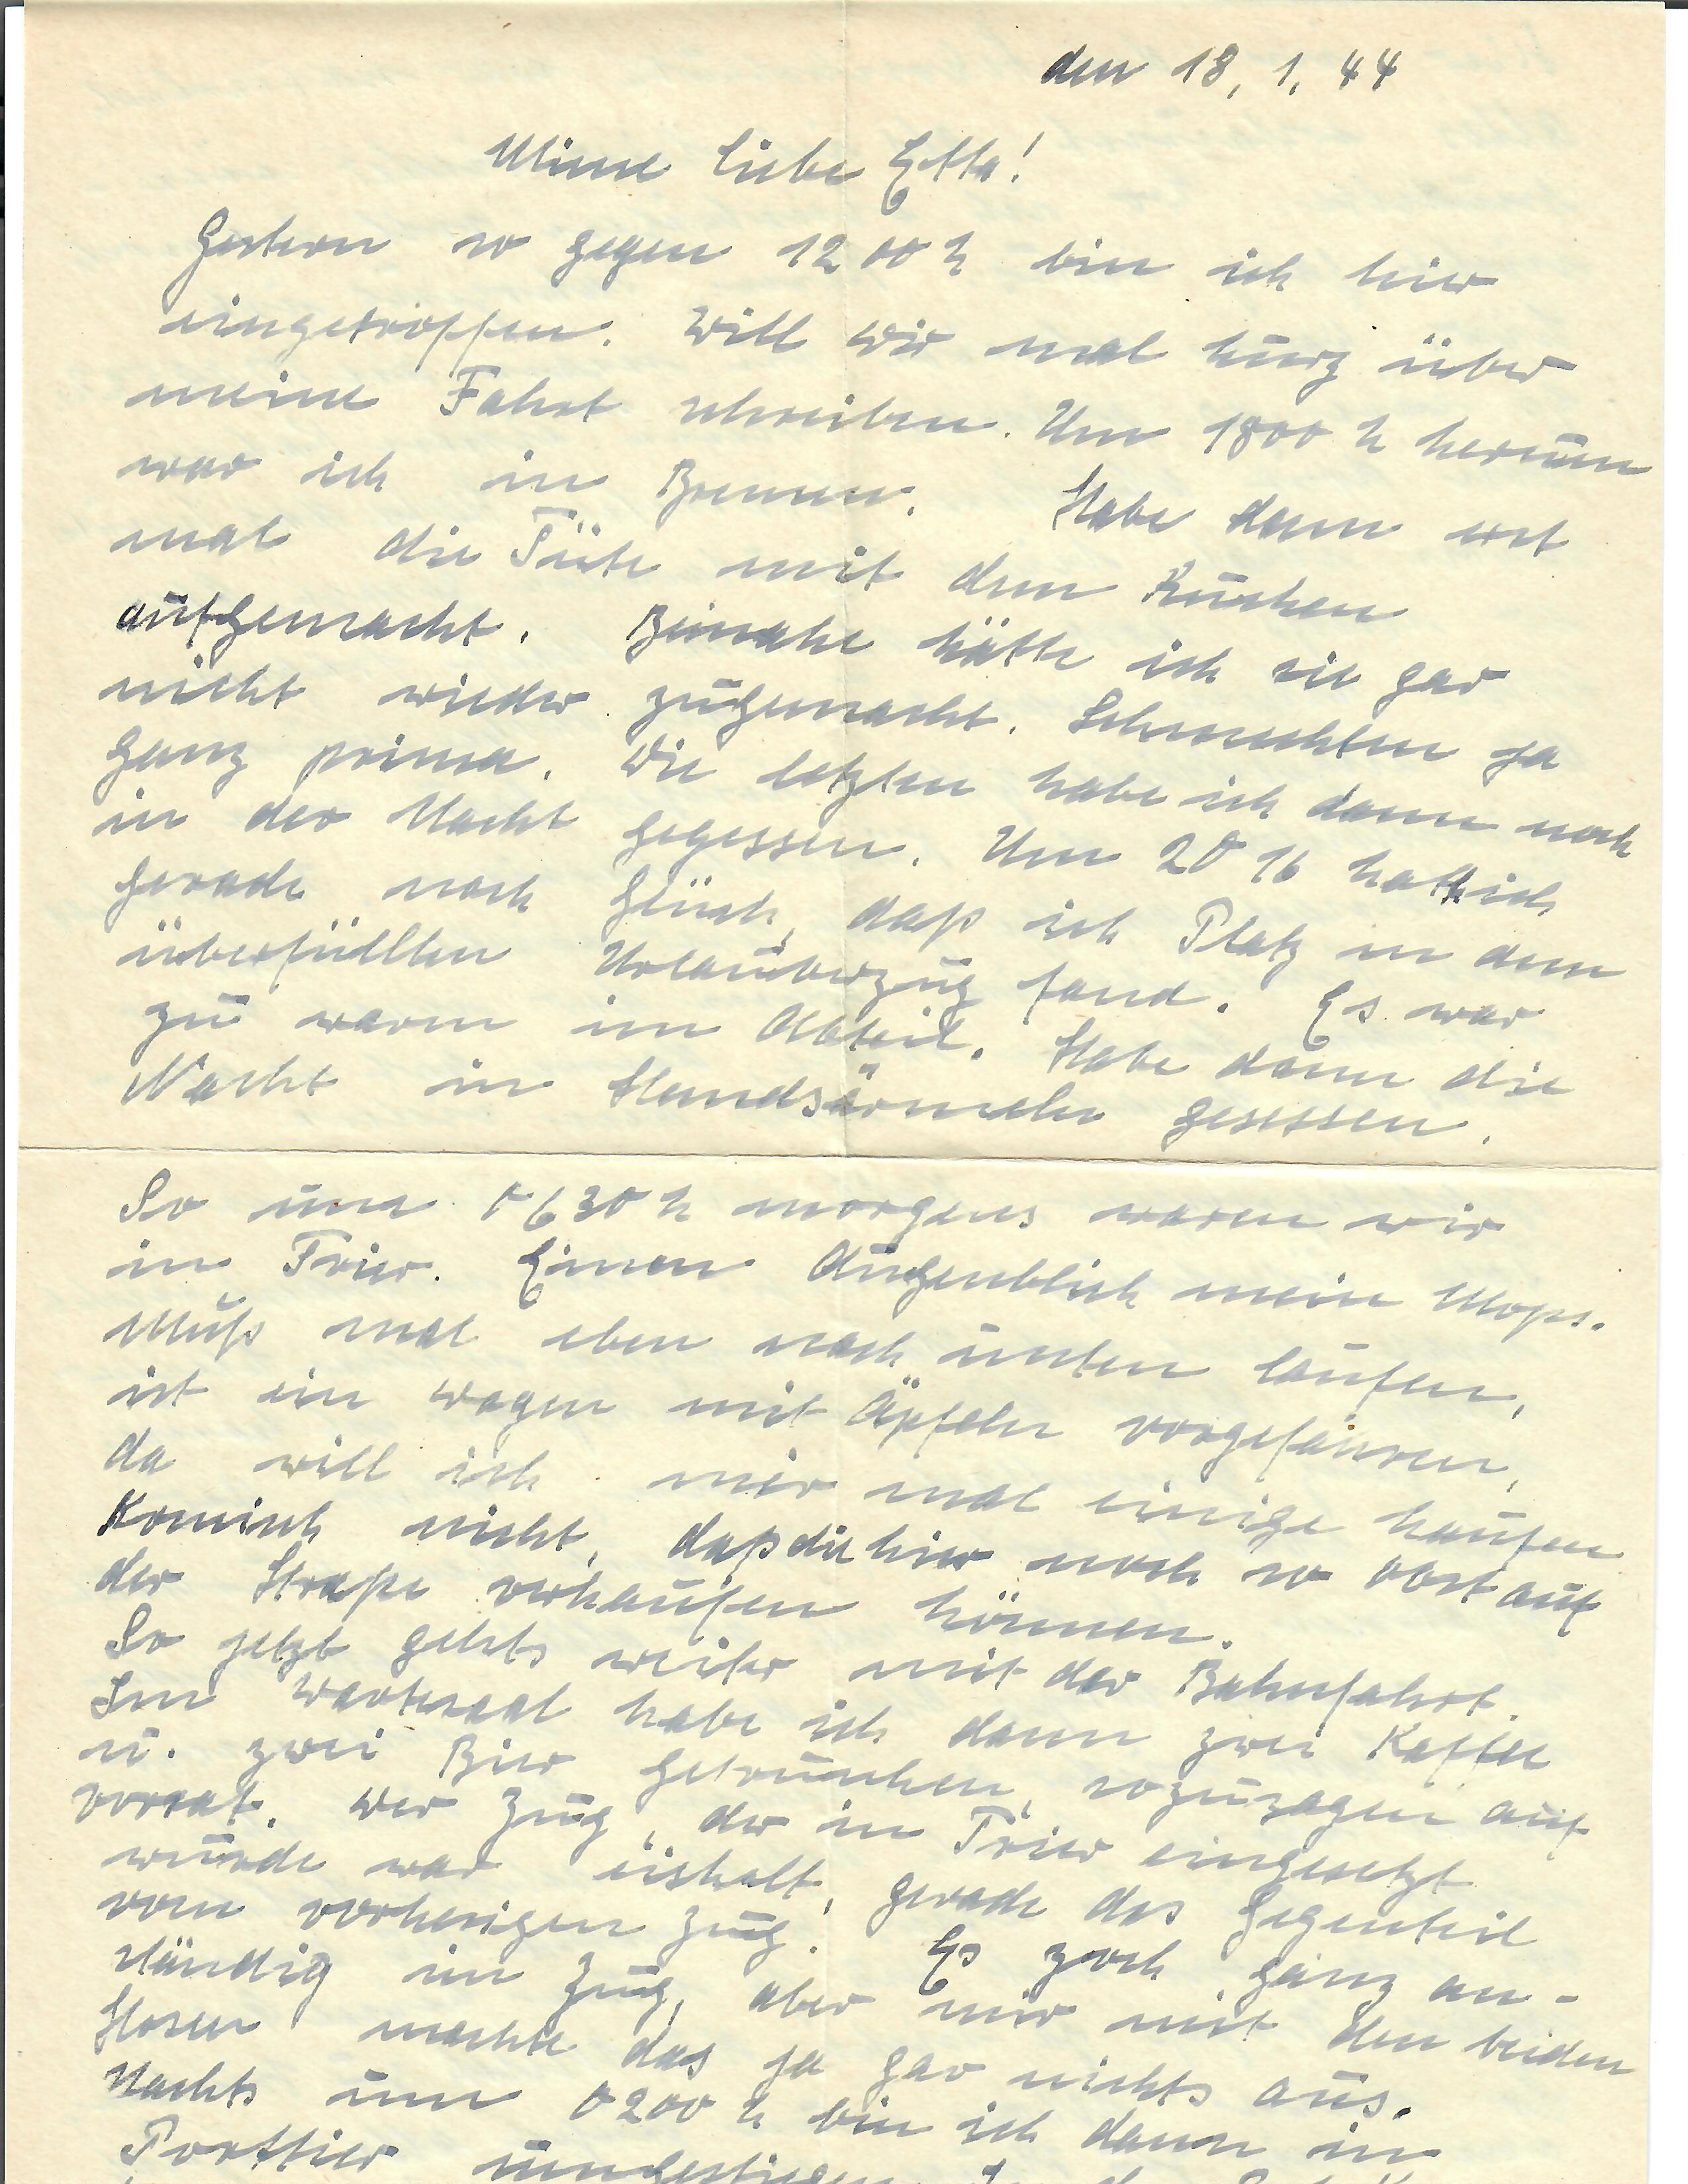 den 18. 1. 44
Meine liebe Etta!
Gestern so gegen 1200 h bin ich hier
eingetroffen. Will Dir mal kurz über
meine Fahrt schreiben. Um 1800 h herum
war ich in Bremen. Habe dann erst
mal die Tüte mit dem Kuchen
aufgemacht. Beinahe hätte ich sie gar
nicht wieder zugemacht. Schmeckten ja
ganz prima. Die letzten habe ich dann noch
in der Nacht gegessen. Um 20 16 hatte ich
gerade noch Glück, daß ich Platz in dem
überfüllten Urlauberzug fand. Es war
zu warm im Abteil. Habe dann die
Nacht in Hemdsärmeln gesessen.
So um 0630 h morgens waren wir
in Trier. Einen Augenblick mein Mops.
Muß mal eben nach unten laufen,
ist ein Wagen mit Äpfeln vorgefahren,
da will ich mir mal einige kaufen
Komisch nicht, daß die hier noch so Obst auf
der Straße verkaufen können.
So jetzt gehts weiter mit der Bahnfahrt.
Im Wartesaal habe ich dann zwei Kaffee
u. zwei Bier getrunken, sozusagen auf
vorrat. Der Zug, der in Trier eingesetzt
wurde war eiskalt, gerade das Gegenteil
vom vorherigen Zug. Es zoch ganz an-
ständig im Zug, aber mir mit den beiden
Hosen machte das ja gar nichts aus.
Nachts um 0200 h bin ich dann in
umgestiegen.